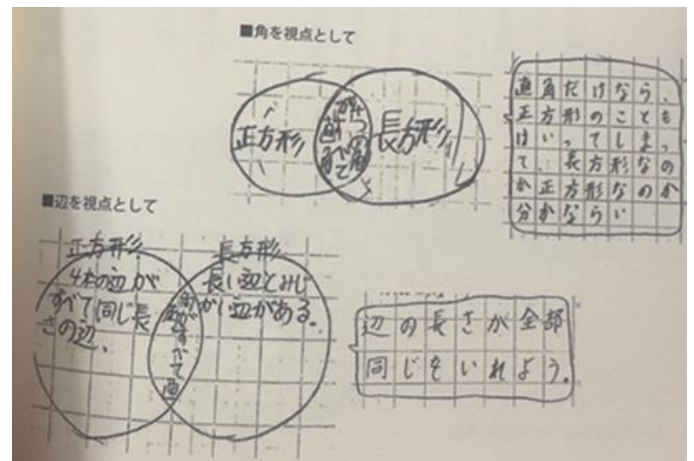 ■角を視点として
正方形
四つの角
がすべて
直角
長方形
直角だけなら、
正方形のことも
はいってしまっ
て、長方形なの
か正方形なのか
分かならい
■辺を視点として
正方形
4本の辺が
すべて同じ長
さの辺。
角がすべて直
角
長方形
長い辺とみじ
かい辺がある。
辺の長さが全部
同じをいれよう。